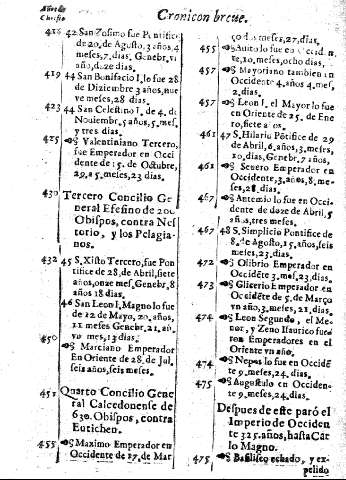 Años de
Christo
Cronicon breue.
418 42 San Zosimo fue Pontifice
de 20, de Agosto, 3 años, 4
meses, 7, dias. Genebr, vn
año, doze dias.
419 43 San Bonifacio I, lo fue 28
de Diziembre 3 años, nue
ve meses, 28 dias.
423 44 San Celestino I, de 4. de
Nouiembr, 5 años, 5, mes,
y tres dias.
425 Valentiniano Tercero,
fue Emperador en Occi
dente de 15. de Octubre,
29, a 5, meses, 23. dias.
430 Tercero Concilio Ge
neral Efesino de 200
Obispos, contra Nes
torio, y los Pelagia-
nos.
432 45 S, Xisto Tercero, fue Pon
tifice de 28, de Abril, siete
años, onze mes, Genebr, 8
años 18 dias.
46 San Leon I, Magno lo fue
de 12 de Mayo, 20, años,
11 meses Genebr, 21, añ,
vn, mes, 13 dias.
450 Marciano Emperador
En Oriente de 28, de Jul,
seis años, seis meses.
451 Quarto Concilio Gene
ral Calcedonense de
630. Obispos, contra
Eutichen.
455 Maximo Emperador en
Occidente de 17, de Mar
ço, 2, meses, 27, dias.
455 Auito lo fue en Occiden,
te, 10, meses, ocho dias,
457 Mayoriano tambien en
Occidente 4, años 4, mes,
2, dias.
457 Leon I, el Mayor lo fue
en Oriente 25, de Ene
ro, siete años.
461 47 S, Hilario Pontifice de 29
de Abril, 6, años, 3, meses,
10, dias, Genebr, 7 años,
461 Seuero Emperador en
Occidente, 3, años, 8, me-
ses, 28, dias.
467 Antemio lo fue en Occi-
dente de doze de Abril, 5
años, tres meses.
467 48 S, Simplicio Pontifice de
8, de Agosto, 15, años, seis
meses, 23, dias.
472 Olibrio Emperador en
Occidẽte 3, mes, 23, dias.
473 Glicerio Emperador en
Occidẽte de 5, de Março
vn año, 3, meses, 21, dias.
474 Leon Segundo, el Me-
nor, y Zeno Isaurico fue
ron Emperadores en el
Oriente vn año.
474 Nepos lo fue en Occidẽ
te 9, meses, 24, dias.
475 Augustulo en Occiden-
te 9, meses, 24, dias.
Despues de este parò el
Imperio de Occiden
te 325, años, hasta Car
lo Magno.
475 Basilisco echado, y ex-
pelido